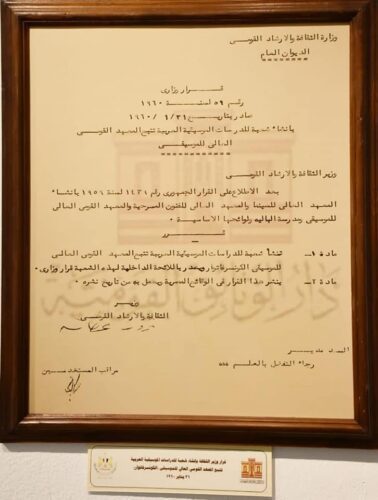 وزارة الثقافة والارشاد القومى
الديوان العام
قرار وزارى
رقم ٥٩ لسنة ١٩٦٠
صادر بتاريخ ٣١ / ١ / ١٩٦٠
بانشاء شعبة للدراسات الموسيقية العربية تتبع المعهد القومى
العالى للموسيقى
وزير الثقافة والارشاد القومى
بعد الاطلاع على القرار الجمهورى رقم ١٤٣٩ لسنة ١٩٥٩ بانشاء
المعهد العالى للسينما والمعهد العالى للفنون المسرحية والمعهد القومى العالى
للموسيقى ومدرسة الباليه ولوائحها الاساسية
قرر
مادة ١ـ تنشأ شعبة للدراسات الموسيقية العربية تتبع المعهد القومى العالى
للموسيقى الكونسرفاتوار ويصدر باللائحة الداخلية لهذه الشعبة قرار وزارى
مادة ٢ـ ينشر هذا القرار فى الوقائع المصرية ويعمل به من تاريخ نشره
وزير
الثقافة والارشاد القومى
ثروت عكاشه
السيد مدير
رجاء التفضل بالعلم
مراقب المستخدمين
دار الوثائق القومية
قرار وزير الثقافة بإنشاء شعبة للدراسات الموسيقية العربية
تتبع المعهد القومى العالى للموسيقى (الكونسرفتوار)
٣١ يناير ١٩٦٠